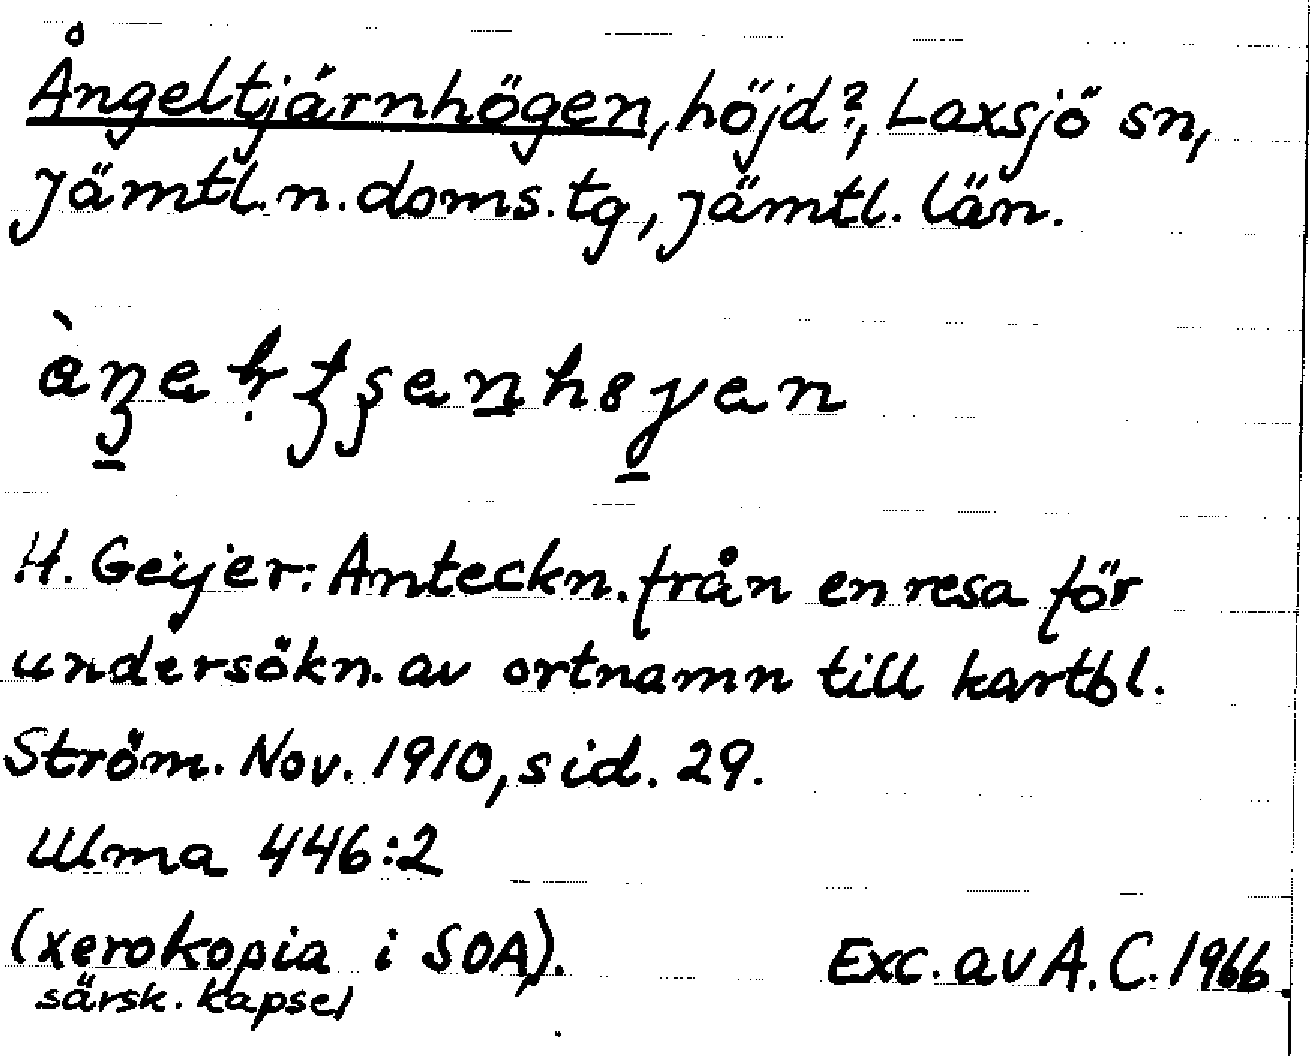 Ångeltjärnhögen, höjd?, Laxsjö sn,
Jämtl. n. doms. tg, Jämtl. län.
H. Geijer: Anteckn. från en resa för
undersökn. av ortnamn till kartbl.
Ström. Nov. 1910, sid. 29.
Ulma 446:2
(xerokopia i SOA). Exc. av A. C. 1966.
särsk. kapsel